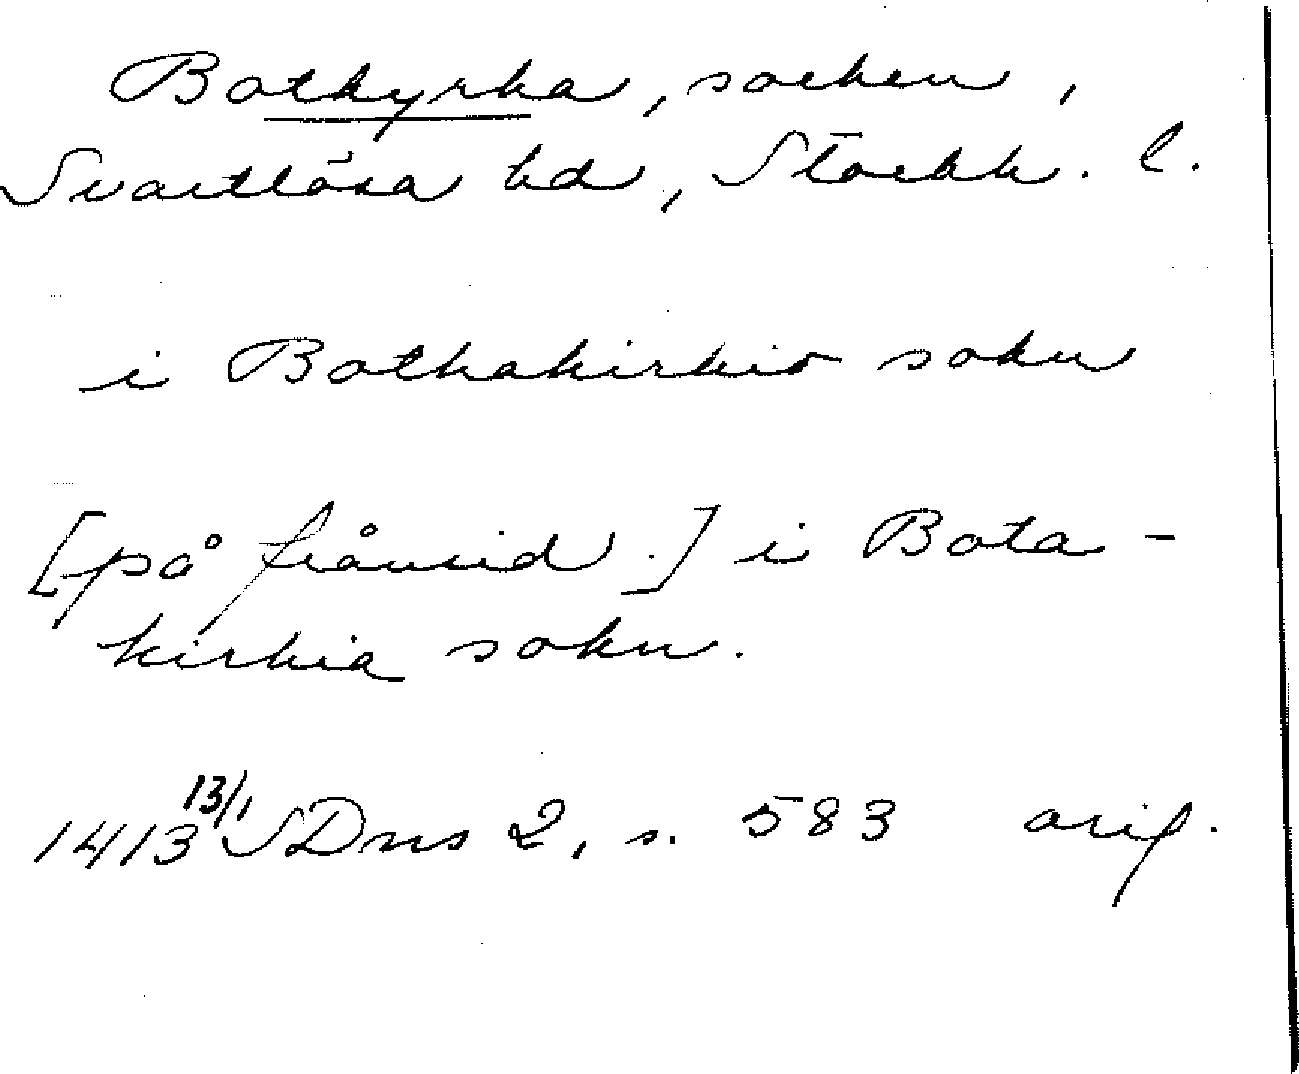 Botkyrka, socken,
Svartlösa hd, Stockh. l.
i Bothakirkio sokn
[på frånsid.] i Bota-
kirkia sokn.
1413 13/1 SDns 2, s. 583 orig.